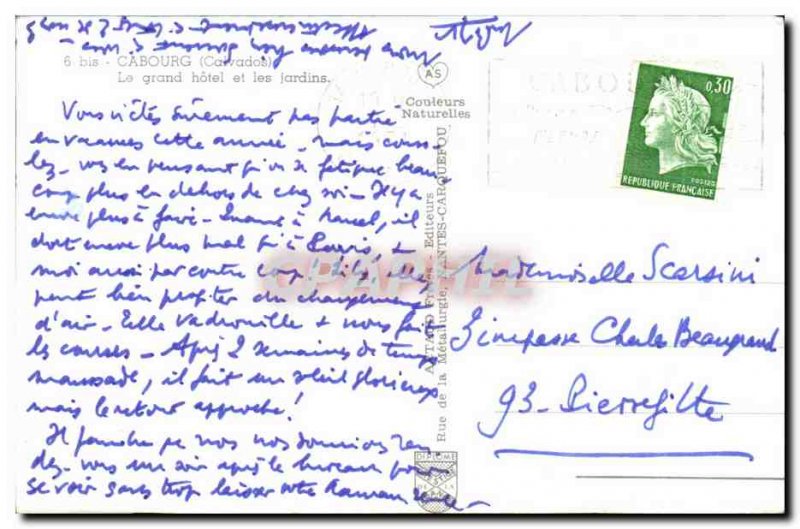 6 bis - CABOURG (Calvados)
Le grand hôtel et les jardins.
Couleurs
Naturelles
0,30
REPUBLIQUE FRANÇAISE
Vous n'êtes sûrement pas partie
en vacances cette année, mais conso
lez-vous en pensant qu'on se fatigue beau
coup plus en dehors de chez soi - Il y a
encore plus à faire - Quant à Marcel, il
dort encore plus mal qu'à Paris +
moi aussi par contre
peut bien profiter du changement
d'air - Elle vadrouille + nous fait
les courses - Après 2 semaines de temps
maussade, il fait un soleil glorieux
mais le retour approche!
Il faudra que nous nous donnions ren
dez-vous un soir après le bureau pour
se voir sans trop laisser votre Maman seule -
Mademoiselle Scarsini
3 impasse Charles Beaugrand
93 - Pierrefitte
ARTAUD Frères - Editeurs
Rue de la Métallurgie, NANTES-CARQUEFOU
CPAPHIL